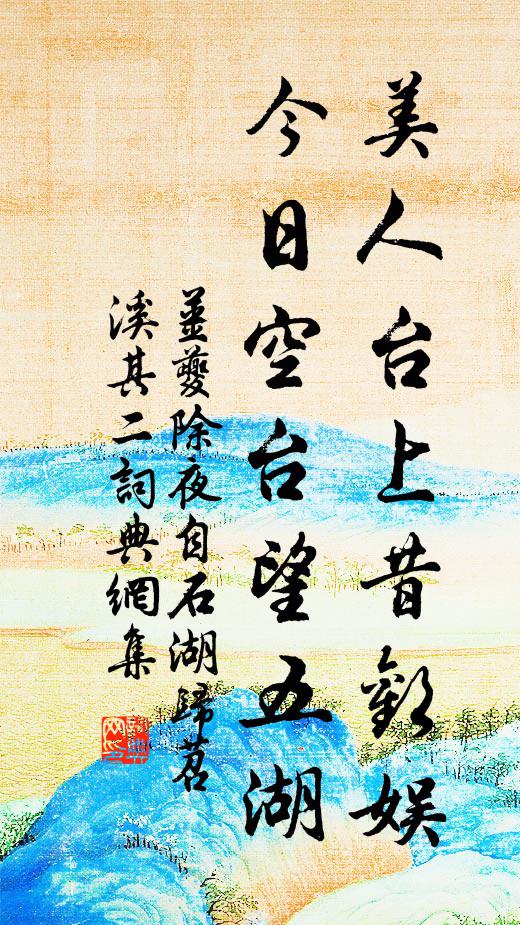 美人台上昔歡娛
今日空台望五湖
姜夔除夜自石湖歸苕
溪其二詞典網集